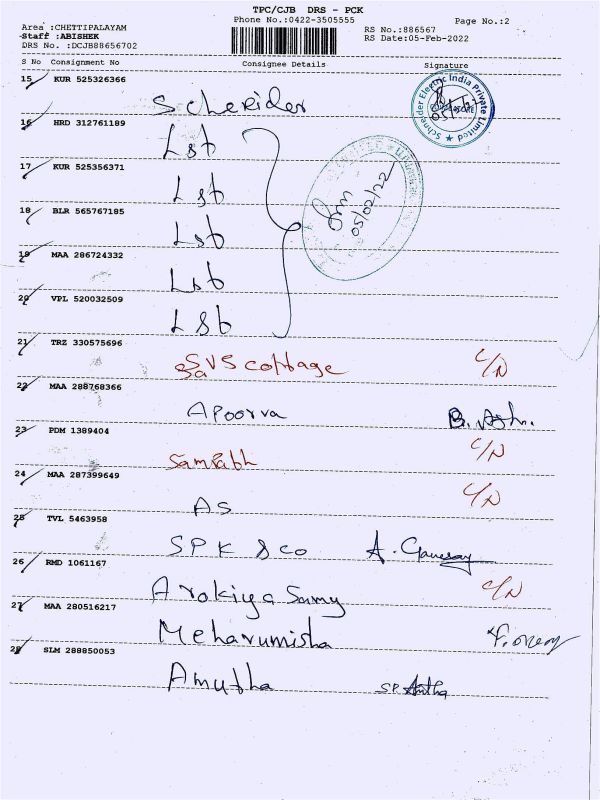 TPC/CJB DRS - PCK
Area :CHETTIPALAYAM Phone No.:0422-3505555 Page No.:2
Staff :ABISHEK RS No.:886567
DRS No. :DCJB88656702 RS Date:05-Feb-2022
S No Consignment No Consignee Details Signature
15 KUR 525326366
Scheider
Schneider Electric India Private Limited
16 HRD 312761189
Lst
17 KUR 525356371
Lst
05/02/22
18 BLR 565767185
Lst
19 MAA 286724332
Lst
20 VPL 520032509
LSt
21 TRZ 330575696
SVS cottage C/N
22 MAA 288768366
Apoorva
23 PDM 1389404
C/N
24 MAA 287399649
AS C/N
25 TVL 5463958
SPK & co A. Ganesay
26 RMD 1061167
Arokiya Samy C/N
27 MAA 280516217
Meharumisha
28 SLM 288850053
Amutha